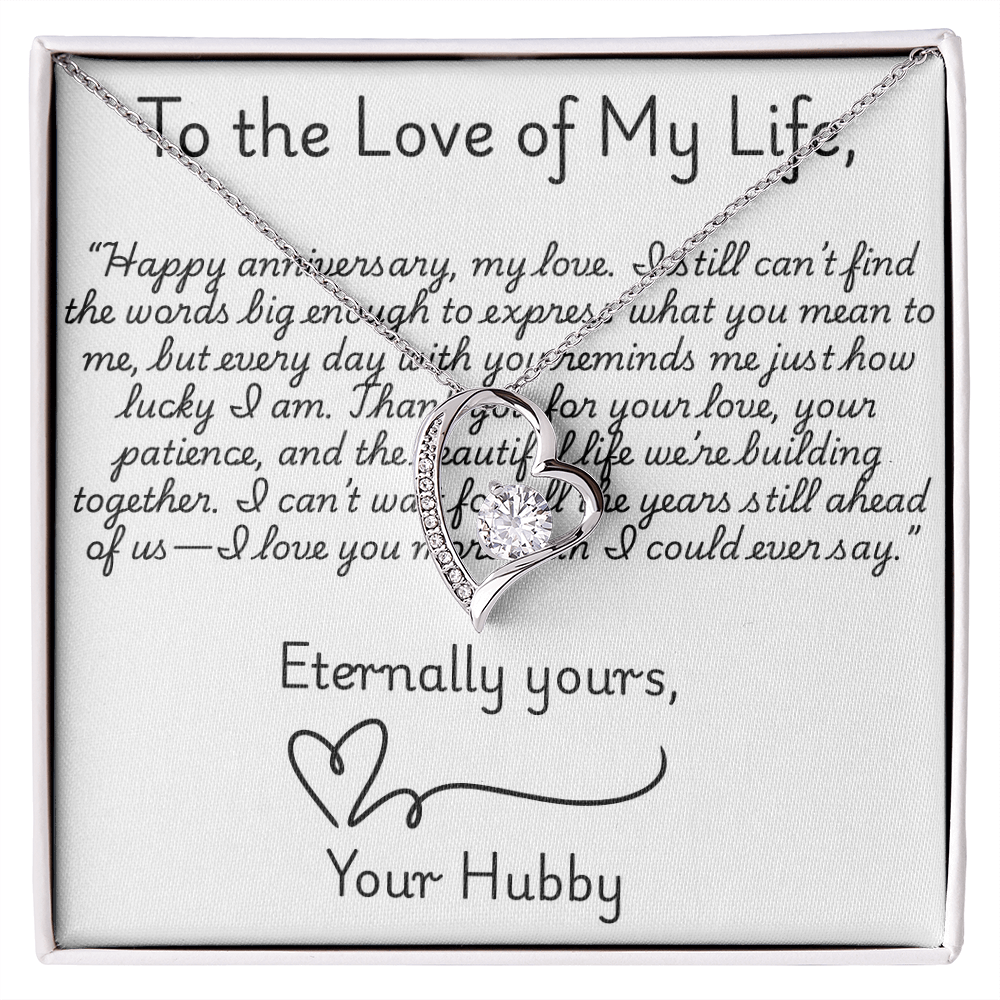 To the Love of My Life,
“Happy anniversary, my love. I still can’t find
the words big enough to express what you mean to
me, but every day with you reminds me just how
lucky I am. Thank you for your love, your
patience, and the beautiful life we’re building
together. I can’t wait for all the years still ahead
of us—I love you more than I could ever say.”
Eternally yours,
Your Hubby